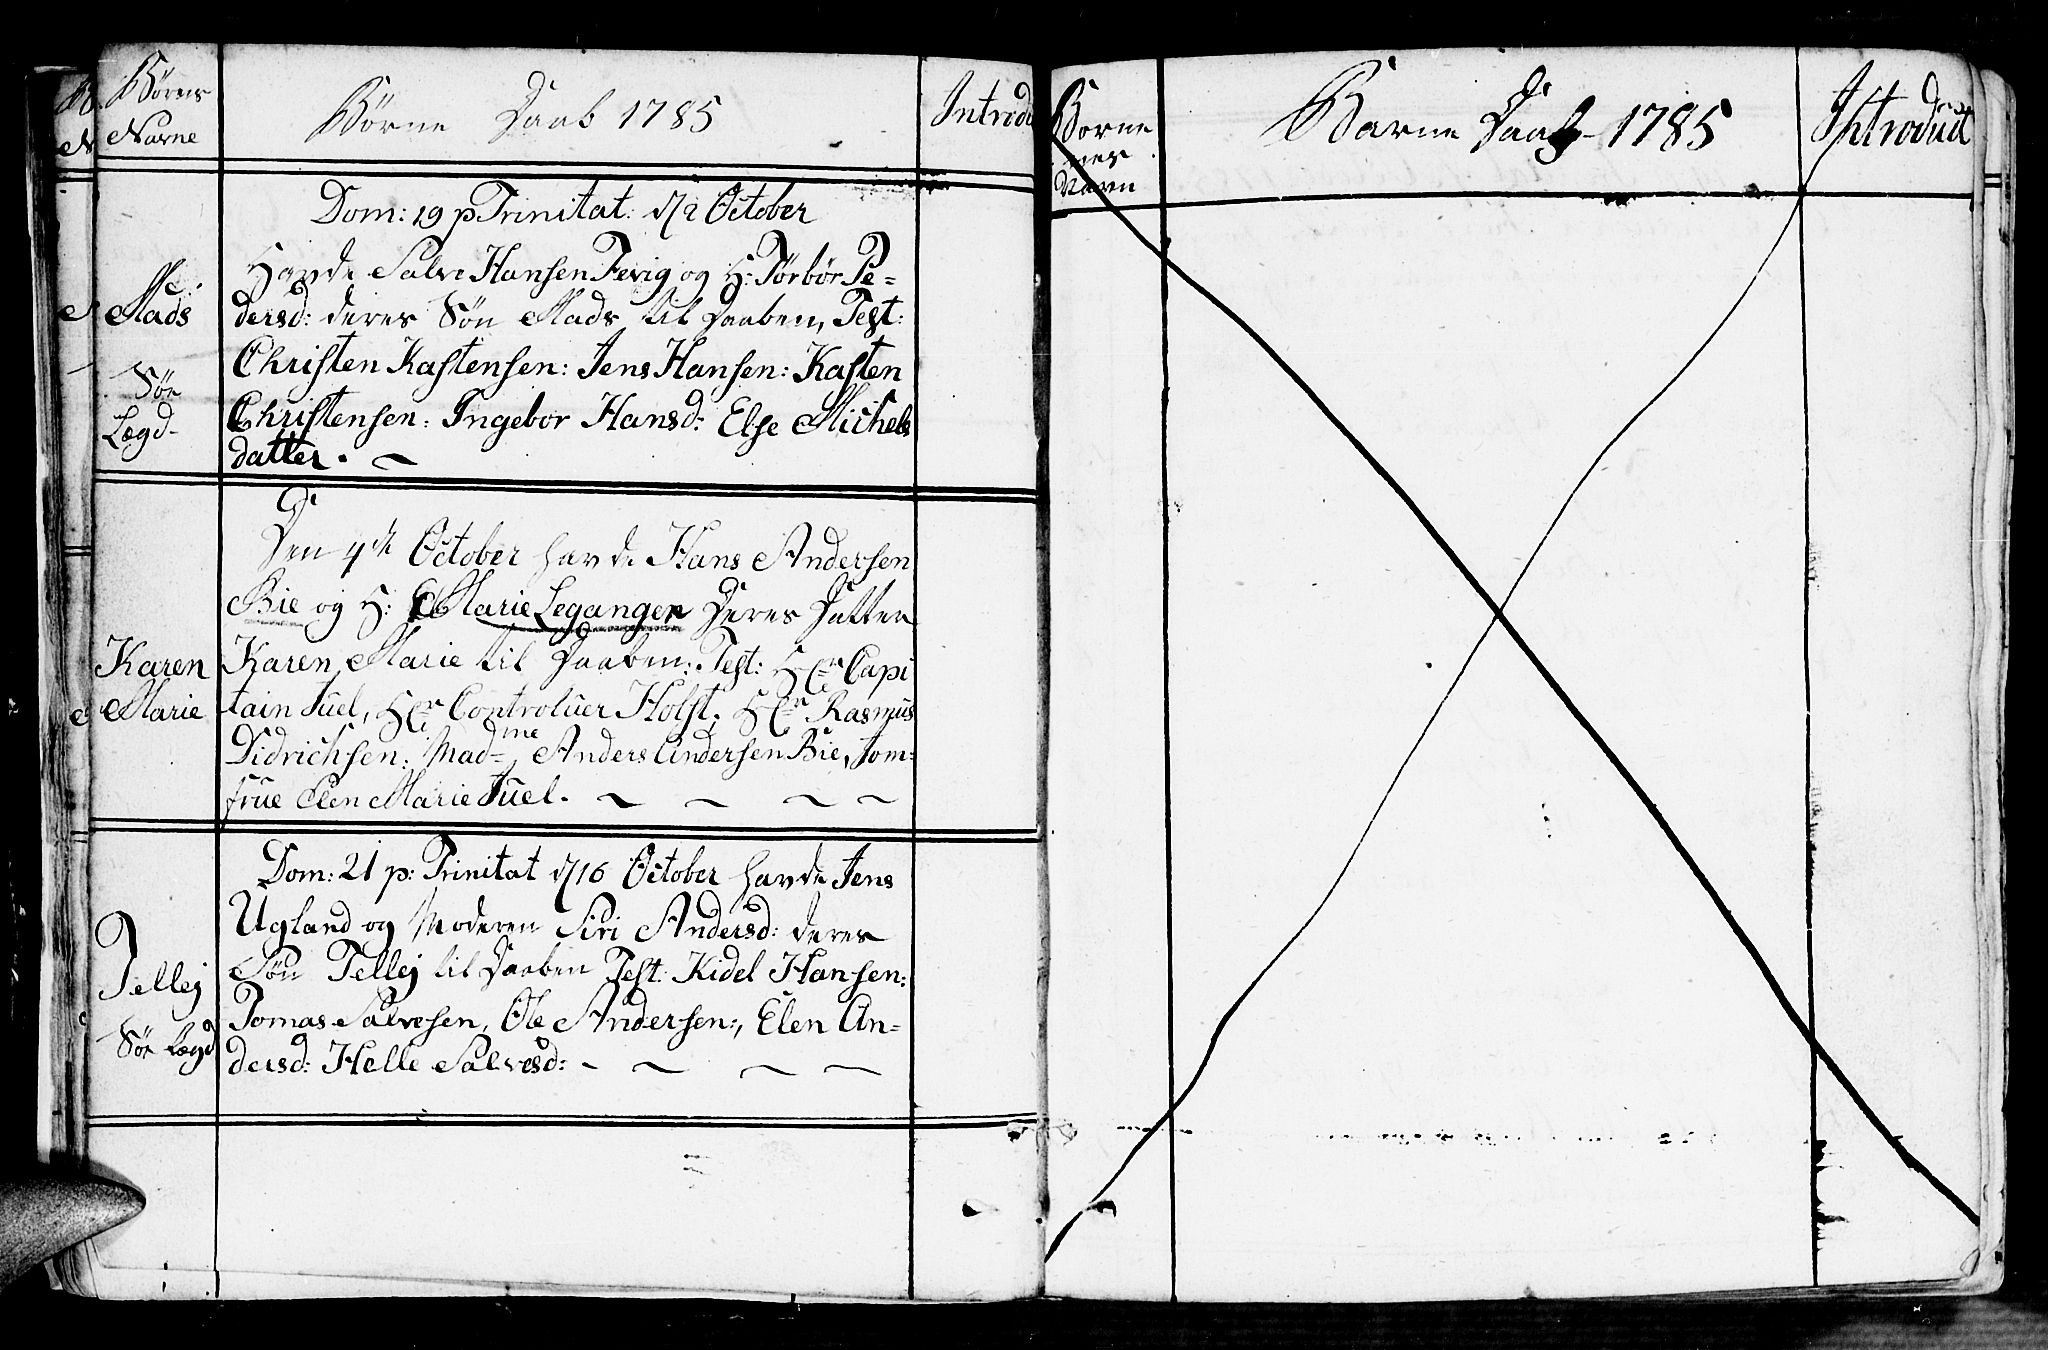 Børens
Navne
Børne Daab 1785
Introd
Dom: 19 p Trinitat: d/2 October
Mads
Sør
Lægd-
Havde Salve Hansen Fevig og H: Tørbør Pe=
dersd: deres Søn Mads til Daaben, Test:
Christen Kastensen: Jens Hansen: Kasten
Christensen: Ingebor Hansd: Else Michels
datter.
Den 4de October havde Hans Andersen
Bie og H: Marie Leganger Deres Datter
Karen
Marie
Karen Marie til Daaben: Test: Hr Capi
tain Juel, Hr Controlüer Holst, Hr Rasmus
Didrichsen: Madme Anders Andersen Bie, Jom=
frue Elen Marie Juel.
Dom: 21 p: Trinitat d/16 October havde Jens
Ugland og Moderen Siri Andersd: deres
Tellej
Sør Lægd
Søn Tellej til Daaben Test: Kidel Hansen:
Tomas Salvesen, Ole Andersen:, Elen An=
dersd: Helle Salvesd:
Borne
nes
Navn
Barne Daab 1785
Introduct